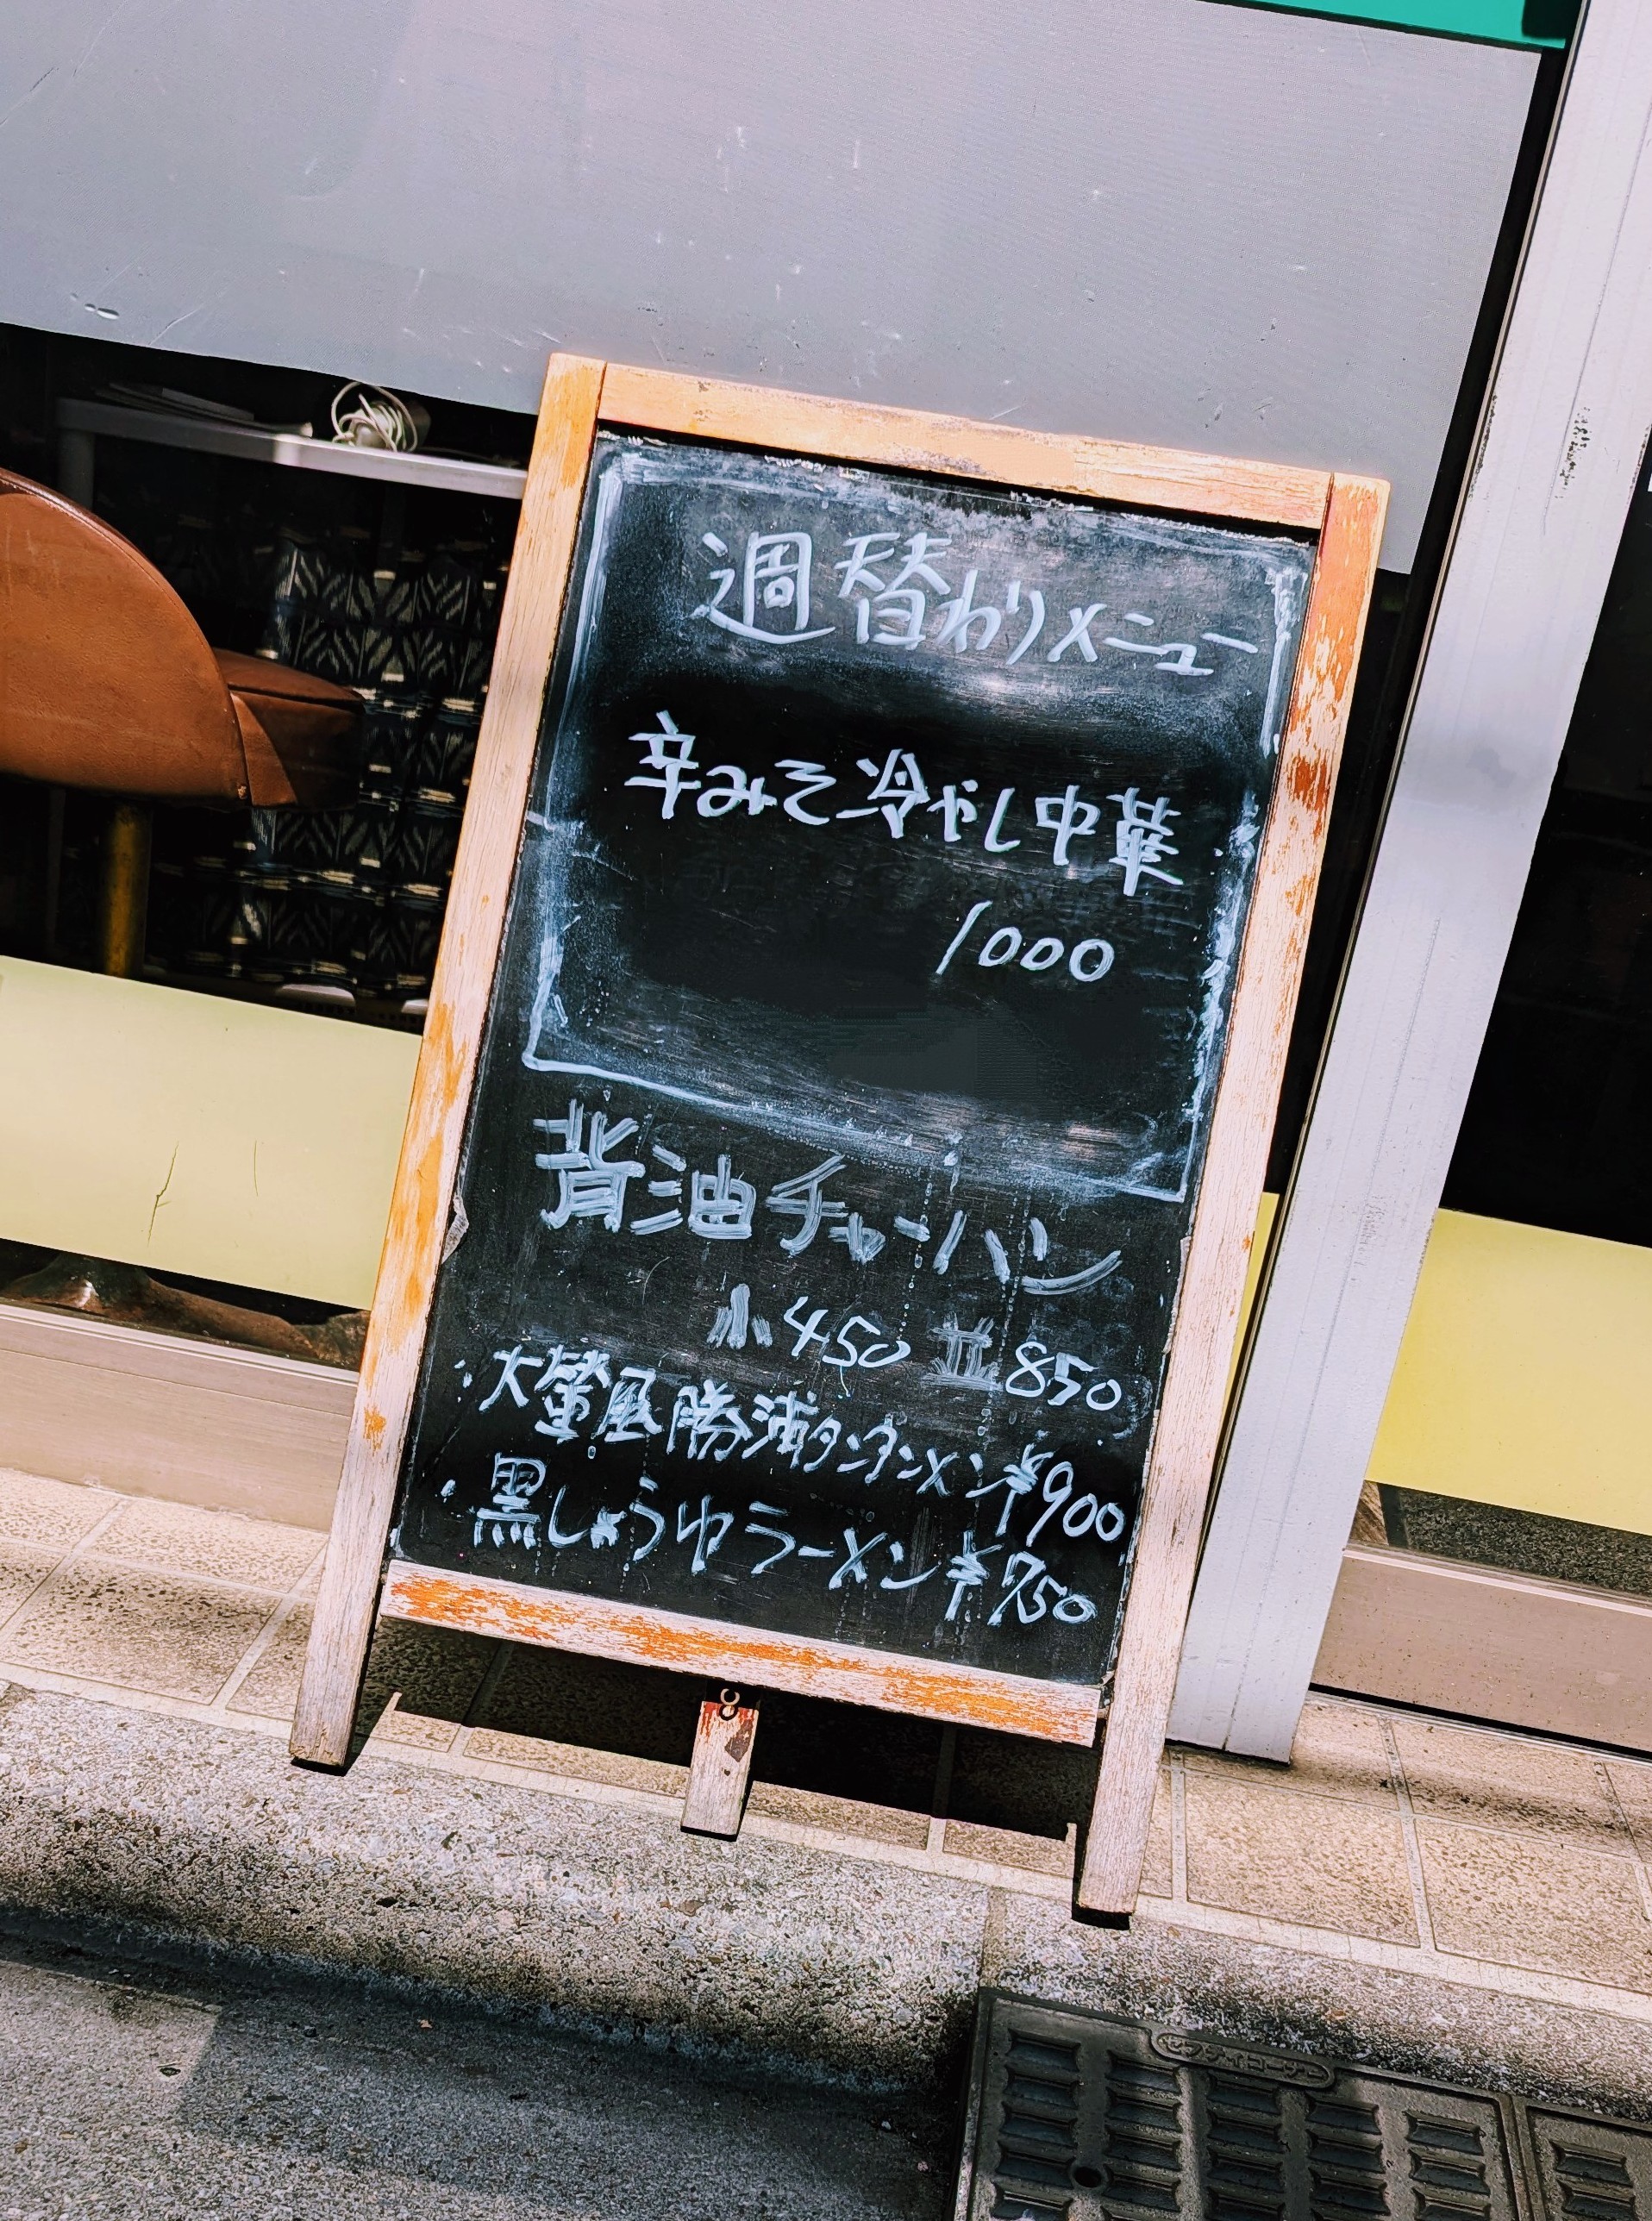 週替わりメニュー
辛みそ冷やし中華
1000
背油チャーハン
小450 並850
・大蛍風勝浦タンタンメン¥900
・黒しょうゆラーメン¥750